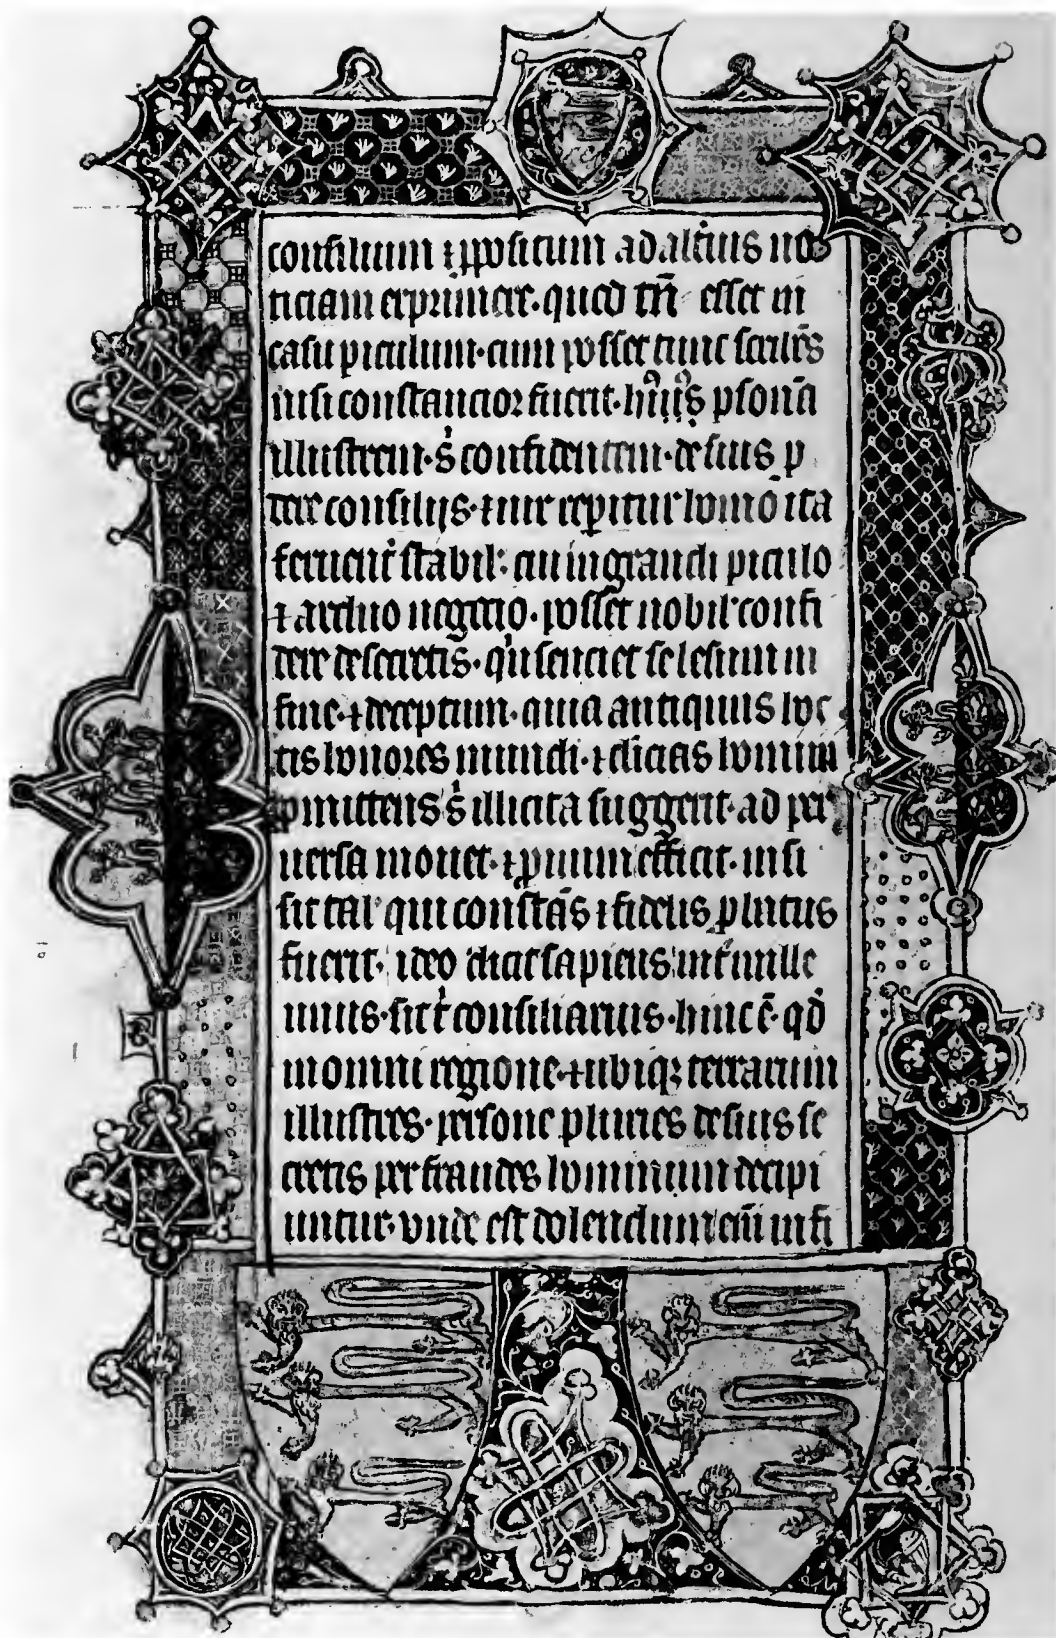 consilium ⁊ ꝓpositum ad alterius no
ticiam exprimere. quod tn̄ esset in
casu ꝑiculum. cum posset tunc
nisi constancior fuerit. ꝑsonā
illustrem. s; confidentem. de suis ꝓ
dere consilijs. ⁊ vix reꝑitur homo ita
feruent̄ stabil'. cui in grandi ꝑiculo
⁊ arduo negocio. posset nobil' confi
dere de secretis. qui senciet se lesum in
fine. ⁊ deceptum. quia antiquus hos
tis honores mundi. ⁊ diuicias homini
ꝓmittens s; illicita suggerit. ad per
uersa mouet. ⁊ efficit. nisi
sit tal' qui constās ⁊ fidelis plurius
fuerit. ideo dicit sapiens int̄ mille
unus. sit t̄ consiliarius. hinc ē. qd̄
in omni regione. ⁊ ubiqꝫ terrarum
illustres. persone pluries de suis se
cretis per fraudes hominum decipi
untur. vnde est dolendum eni in fi